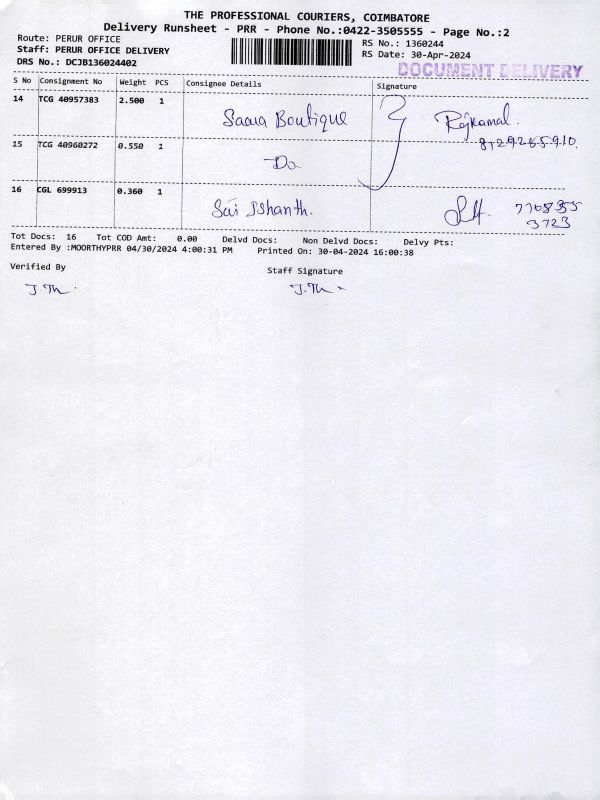 THE PROFESSIONAL COURIERS, COIMBATORE
Delivery Runsheet - PRR - Phone No.:0422-3505555 - Page No.:2
Route: PERUR OFFICE
RS No.: 1360244
Staff: PERUR OFFICE DELIVERY
RS Date: 30-Apr-2024
DRS No.: DCJB136024402
DOCUMENT DELIVERY
S No Consignment No Weight PCS Consignee Details Signature
14 TCG 40957383 2.500 1 Saara Boutique Rajkamal.
15 TCG 40960272 0.550 1 Do
16 CGL 699913 0.360 1 Sai Ishanth.
3723
Tot Docs: 16 Tot COD Amt: 0.00 Delvd Docs: Non Delvd Docs: Delvy Pts:
Entered By :MOORTHYPRR 04/30/2024 4:00:31 PM Printed On: 30-04-2024 16:00:38
Verified By Staff Signature